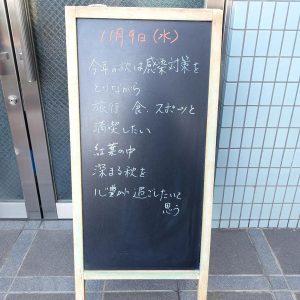 11月9日(水)
今年の秋は感染対策を
とりながら
旅行 食、スポーツと
満喫したい
紅葉の中
深まる秋を
心豊かに過ごしたいと
思う